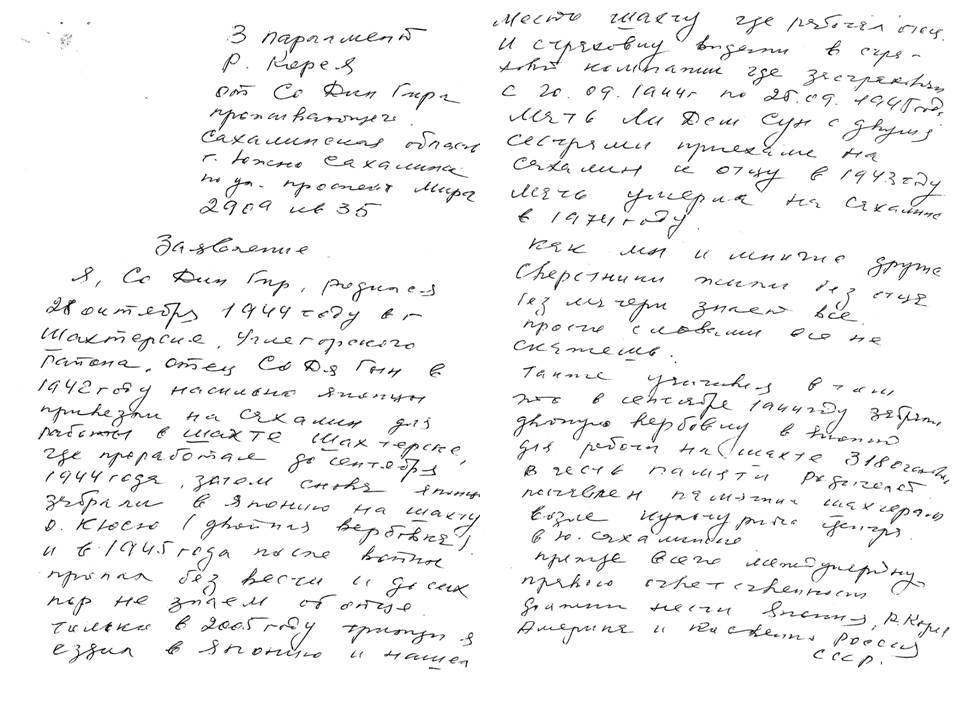 З парламент
Р. Корея
от Со Дин Гира
проживающего
Сахалинская область
г. Южно Сахалинск
по ул. проспект Мира
290а кв 35
Заявление
Я, Со Дин Гир, родился
28 октября 1944 году в г
Шахтерске, Углегорского
района, отец Со Дя Гын в
1942 году насильно японцы
привезли на Сахалин для
работы в шахте Шахтерске,
где проработал до сентября
1944 года, затем снова японцы
забрали в Японию на шахту
о. Кюсю (двойная вербовка)
и в 1945 года после войны
пропал без вести и до сих
пор не знаем об отце.
только в 2005 году трижды я
ездил в Японию и нашел
место шахту где работал отец.
И страховку видели в стра-
ховой компании где застрахован
с 20.09.1944г по 25.09.1945 год,
Мать Ли Дем Сун с двумя
сестрами приехали на
Сахалин к отцу в 1943 году
мать умерла на Сахалине
в 1974 году.
как мы и многие другие
сверстники жили без отца
без матери знают все
просто словами все не
скажешь.
Также учитывая в том
что в сентябре 1944 году забрали
двойную вербовку в Японию
для работы на шахте 3180 человек
в честь памяти родителей
поставлен памятник шахтерам
возле культурного центра
в Ю. Сахалинске
прежде всего международную
прямую ответственность
должны нести Япония, Р. Корея
Америка и косвенно Россия
СССР.